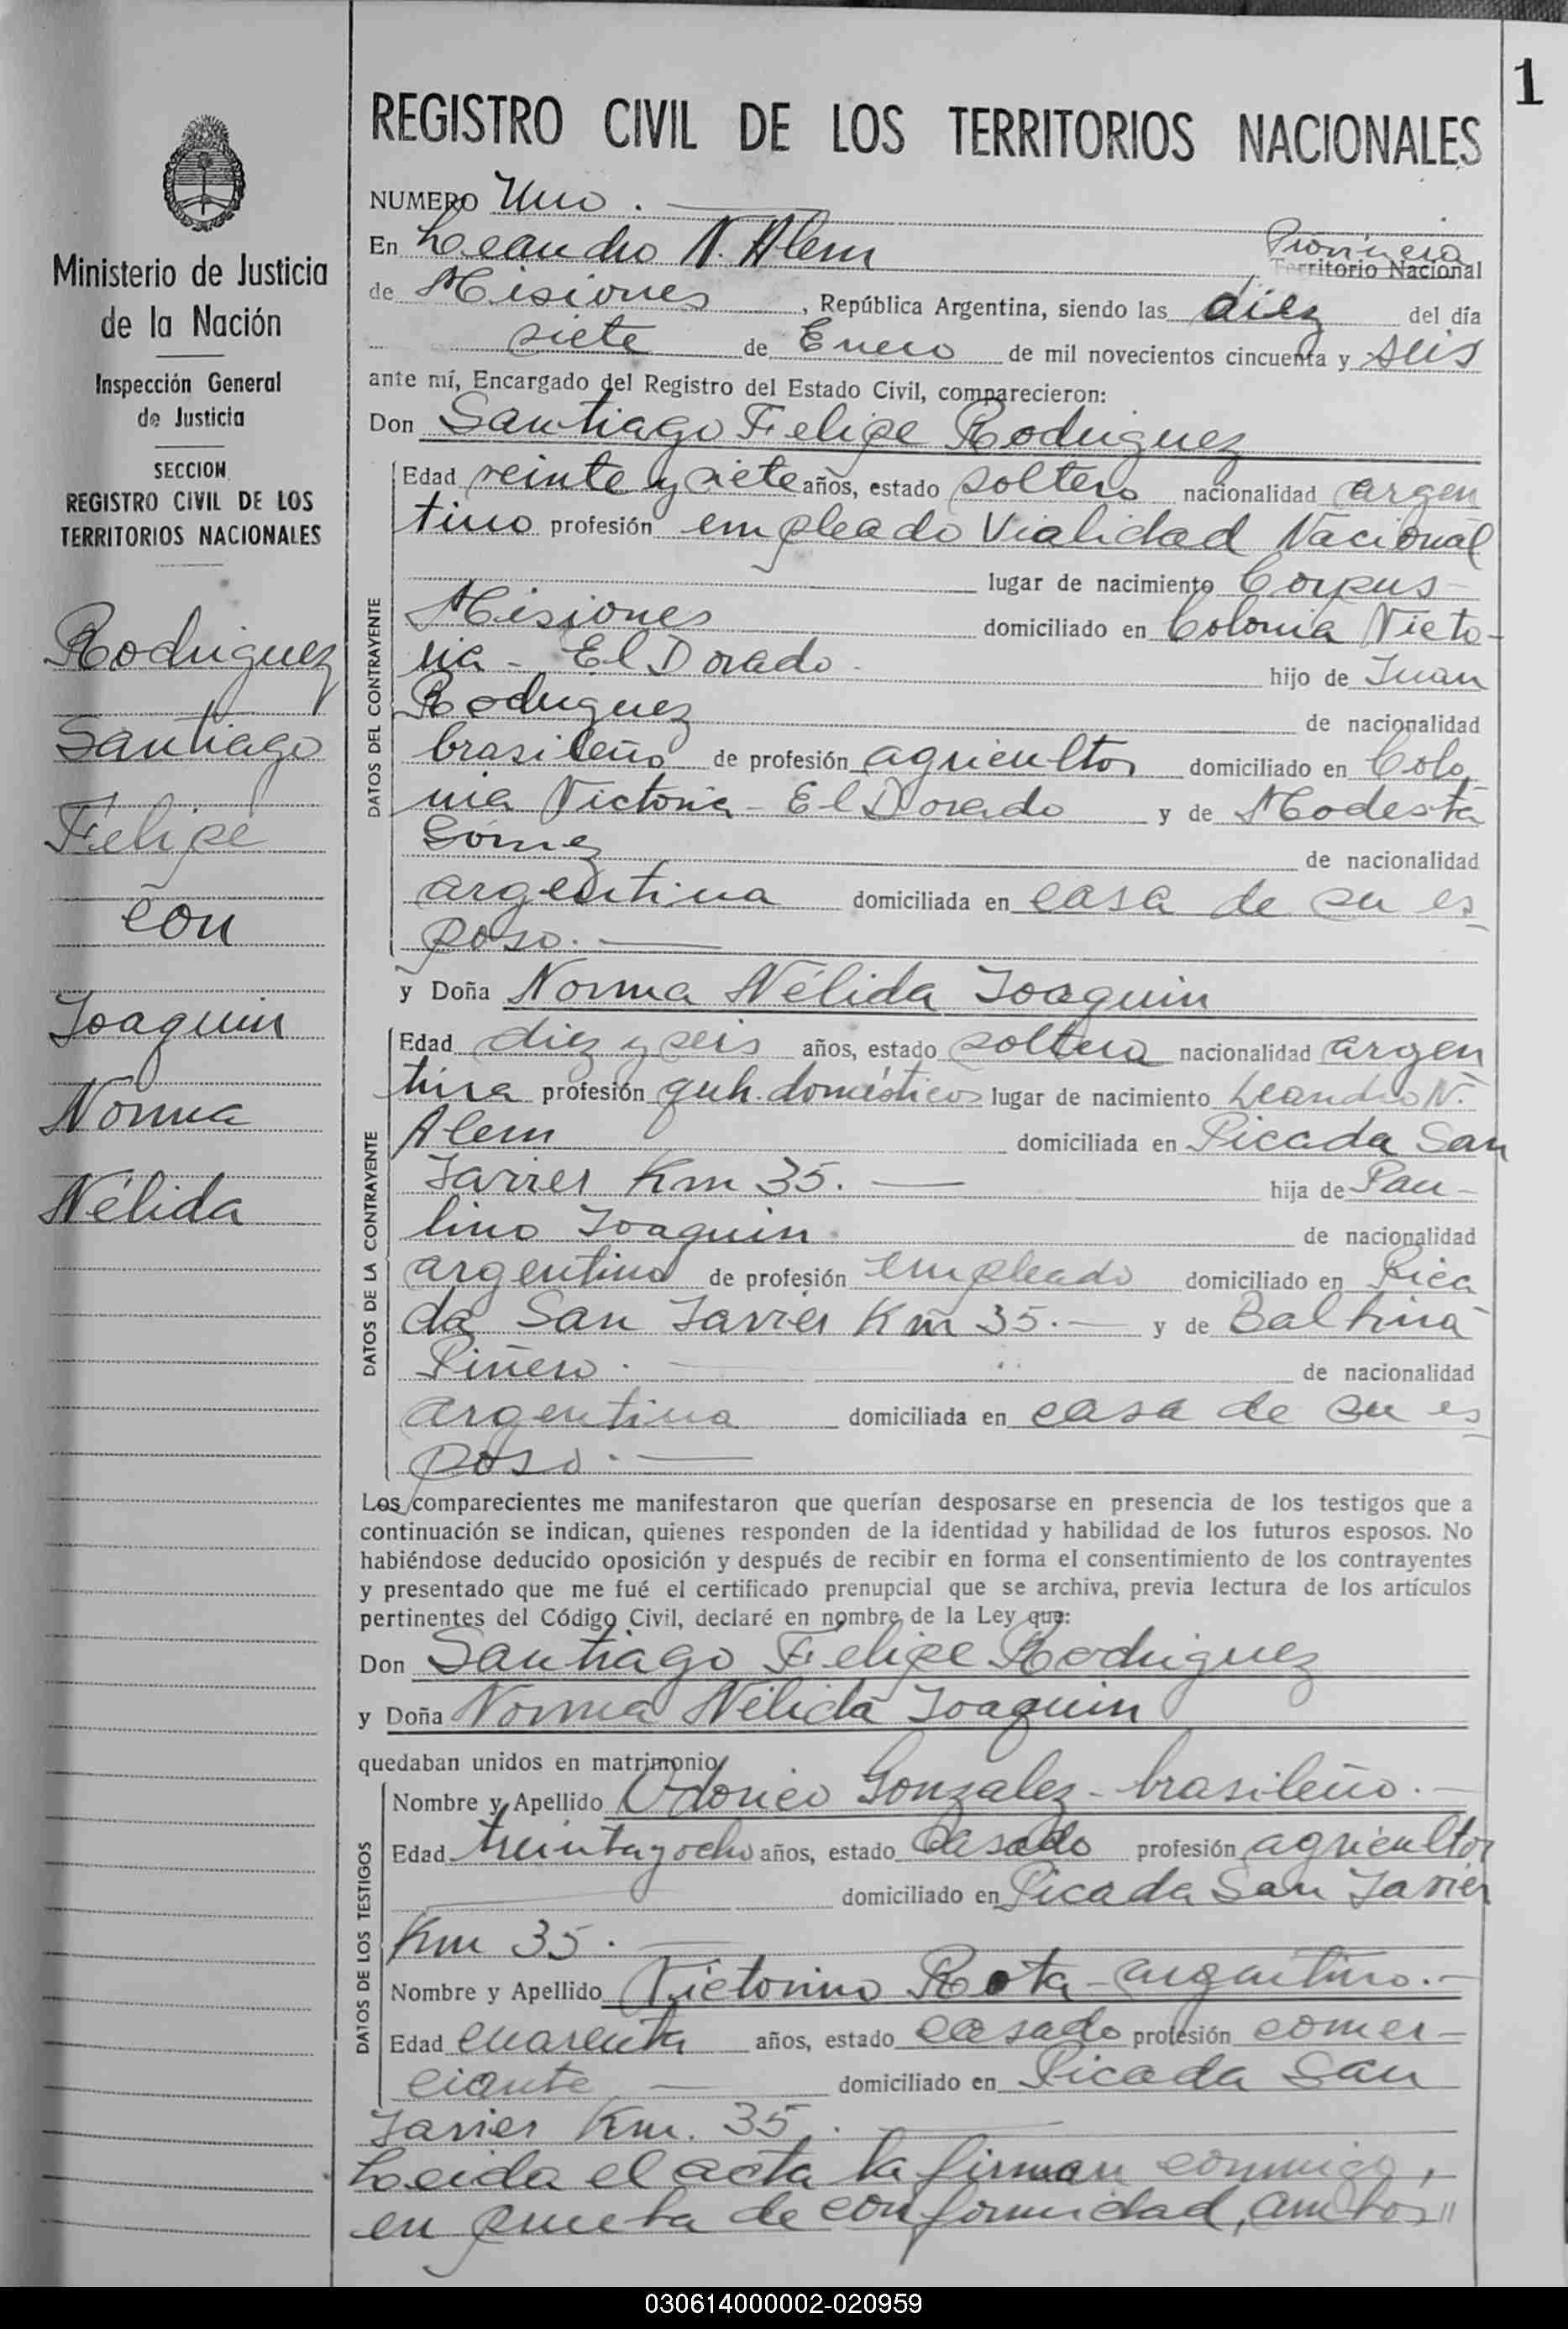 1
REGISTRO CIVIL DE LOS TERRITORIOS NACIONALES
Ministerio de Justicia
de la Nación
Inspección General
de Justicia
SECCION
REGISTRO CIVIL DE LOS
TERRITORIOS NACIONALES
Rodriguez
Santiago
Felipe
con
Joaquin
Norma
Nélida
NUMERO Uno.
En Leandro N. Alem Provincia Territorio Nacional
de Misiones, República Argentina, siendo las diez del día
siete de Enero de mil novecientos cincuenta y seis
ante mí, Encargado del Registro del Estado Civil, comparecieron:
Don Santiago Felipe Rodriguez
DATOS DEL CONTRAYENTE
Edad veinte y siete años, estado soltero nacionalidad argen
tino profesión empleado Vialidad Nacional
lugar de nacimiento Corpus
Misiones domiciliado en Colonia Victo-
ria - El Dorado - hijo de Juan
Rodriguez de nacionalidad
brasileño de profesión agricultor domiciliado en Colo
nia Victoria - El Dorado y de Modesta
Gómez de nacionalidad
argentina domiciliada en casa de su es
poso.
y Doña Norma Nélida Joaquin
DATOS DE LA CONTRAYENTE
Edad diez y seis años, estado soltera nacionalidad argen
tina profesión queh. domésticos lugar de nacimiento Leandro N.
Alem domiciliada en Picada San
Javier Km 35. hija de Pau-
lino Joaquin de nacionalidad
argentino de profesión empleado domiciliado en Pica
da San Javier Km 35.- y de Balbina
Piñero. de nacionalidad
argentina domiciliada en casa de su es
poso.
Los comparecientes me manifestaron que querían desposarse en presencia de los testigos que a
continuación se indican, quienes responden de la identidad y habilidad de los futuros esposos. No
habiéndose deducido oposición y después de recibir en forma el consentimiento de los contrayentes
y presentado que me fué el certificado prenupcial que se archiva, previa lectura de los artículos
pertinentes del Código Civil, declaré en nombre de la Ley que:
Don Santiago Felipe Rodriguez
y Doña Norma Nélida Joaquin
quedaban unidos en matrimonio
DATOS DE LOS TESTIGOS
Nombre y Apellido Odorico Gonzalez - brasileño.-
Edad treinta y ocho años, estado casado profesión agricultor
domiciliado en Picada San Javier
Km 35.
Nombre y Apellido Victorino Rota - argentino.-
Edad cuarenta años, estado casado profesión comer-
ciante domiciliado en Picada San
Javier Km. 35.
Leida el acta la firman conmigo,
en prueba de conformidad, ambos"
030614000002-020959